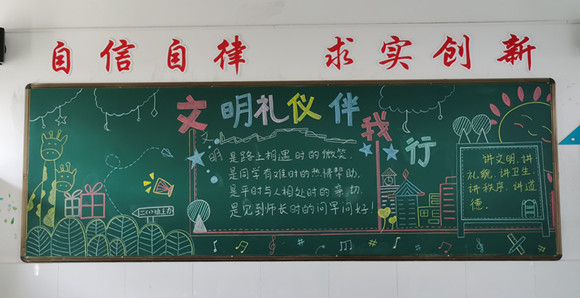 自信自律 求实创新
文明礼仪伴我行
是路上相遇时的微笑,
是同学有难时的热情帮助,
是平时与人相处时的亲切,
是见到师长时的问早问好!
讲文明,讲
礼貌,讲卫生,
讲秩序,讲道
德。